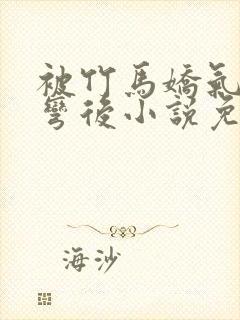 被竹馬嬌氣
彎後小說免
海沙